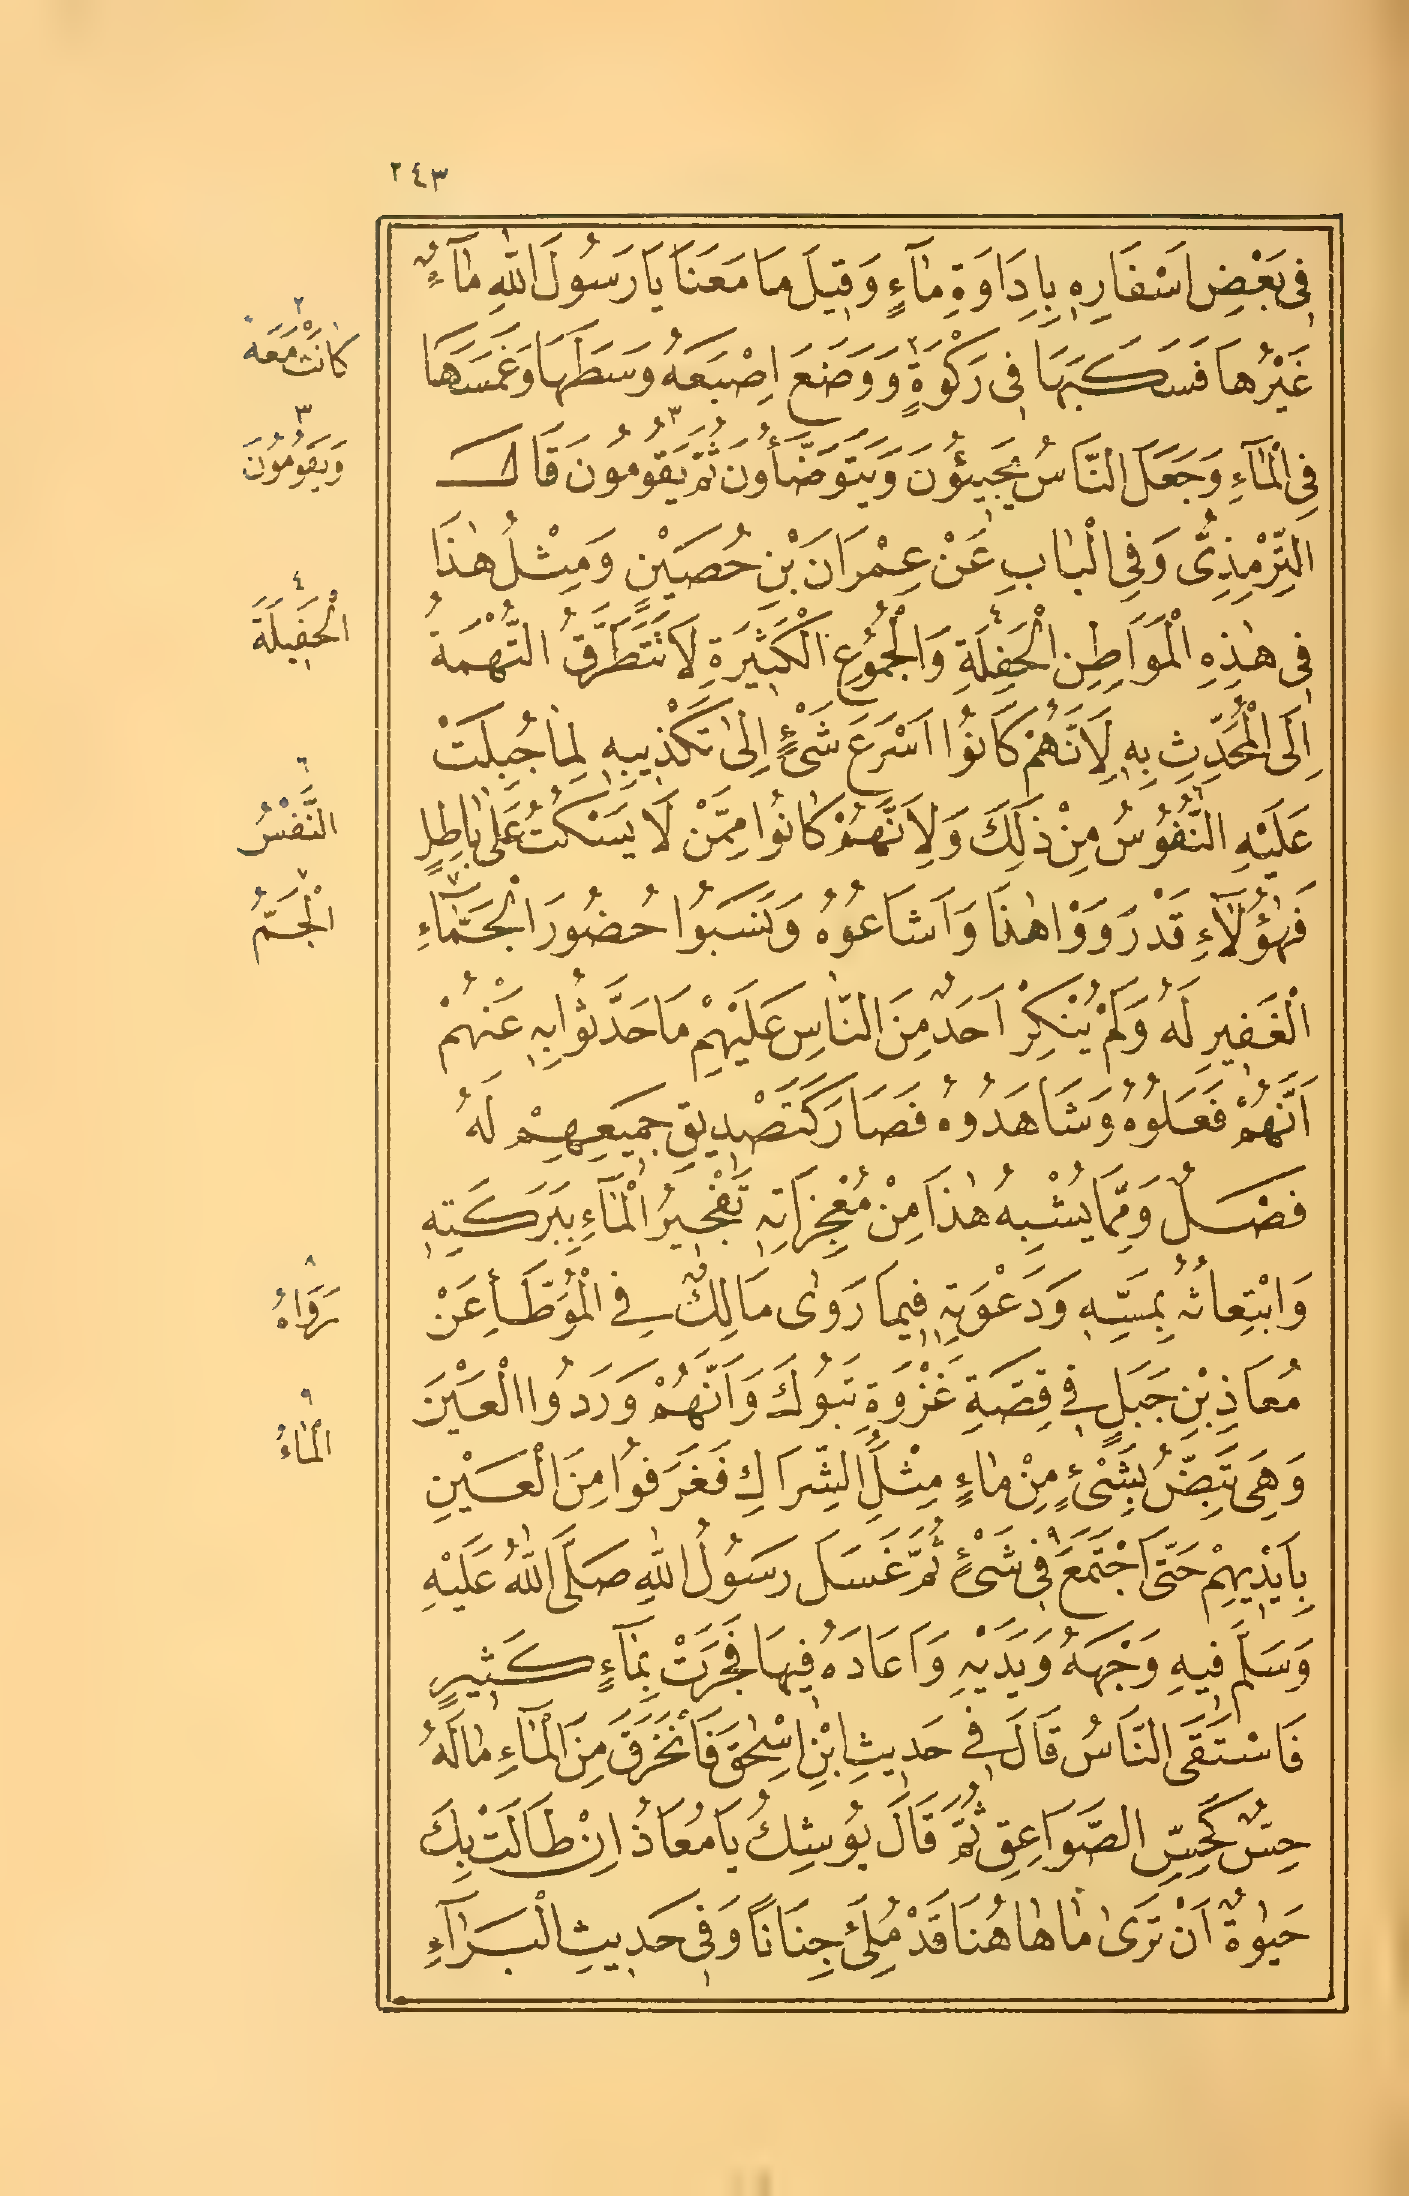 ٢٤٣
فِى بَعْضِ اَسْفَارِهِ بِاِدَاوَةِ مَآءٍ وَقِيلَ مَا مَعَنَا يَا رَسُولَ اللّٰهِ مَآءٌ
غَيْرُهَا فَسَكَبَهَا فِى رَكْوَةٍ٢ وَوَضَعَ اِصْبَعَهُ وَسَطَهَا وَغَمَسَهَا
فِى الْمَآءِ وَجَعَلَ النَّاسُ يَجِيئُونَ وَيَتَوَضَّأُونَ ثُمَّ يَقُومُونَ٣ قَالَ
التِّرْمِذِىُّ وَفِى الْبَابِ عَنْ عِمْرَانَ بْنِ حُصَيْنٍ وَمِثْلُ هٰذَا
فِى هٰذِهِ الْمَوَاطِنِ الْحَفِلَةِ٤ وَالْجُمُوعِ الْكَثِيرَةِ لَا تَتَطَرَّقُ التُّهْمَةُ
اِلَى الْمُحَدِّثِ بِهِ لِاَنَّهُمْ كَانُوا اَسْرَعَ شَىْءٍ اِلٰى تَكْذِيبِهِ لِمَا جُبِلَتْ
عَلَيْهِ النُّفُوسُ٦ مِنْ ذٰلِكَ وَلِاَنَّهُمْ كَانُوا مِمَّنْ لَا يَسْكُتُ عَلٰى بَاطِلٍ
فَهٰؤُلَآءِ قَدْ رَوَوْا هٰذَا وَاَشَاعُوهُ وَنَسَبُوا حُضُورَ الْجَمَّآءِ٧
الْغَفِيرِ لَهُ وَلَمْ يُنْكِرْ اَحَدٌ مِنَ النَّاسِ عَلَيْهِمْ مَا حَدَّثُوا بِهِ عَنْهُمْ
اَنَّهُمْ فَعَلُوهُ وَشَاهَدُوهُ فَصَارَ كَتَصْدِيقِ جَمِيعِهِمْ لَهُ
فَصْلٌ وَمِمَّا يُشْبِهُ هٰذَا مِنْ مُعْجِزَاتِهِ تَفْجِيرُ الْمَآءِ بِبَرَكَتِهِ
وَابْتِعَاثُهُ بِمَسِّهِ وَدَعْوَتِهِ فِيمَا رَوٰى مَالِكٌ فِى الْمُوَطَّأِ عَنْ
مُعَاذِ بْنِ جَبَلٍ فِى قِصَّةِ غَزْوَةِ تَبُوكَ وَاَنَّهُمْ وَرَدُوا الْعَيْنَ
وَهِىَ تَبِضُّ بِشَىْءٍ مِنْ مَاءٍ مِثْلِ الشِّرَاكِ فَغَرَفُوا مِنَ الْعَيْنِ
بِاَيْدِيهِمْ حَتَّى اجْتَمَعَ٩ فِى شَىْءٍ ثُمَّ غَسَلَ رَسُولُ اللّٰهِ صَلَّى اللّٰهُ عَلَيْهِ
وَسَلَّمَ فِيهِ وَجْهَهُ وَيَدَيْهِ وَاَعَادَهُ فِيهَا فَجَرَتْ بِمَآءٍ كَثِيرٍ
فَاسْتَقَى النَّاسُ قَالَ فِى حَدِيثِ ابْنِ اِسْحٰقَ فَانْخَرَقَ مِنَ الْمَآءِ مَالَهُ
حِسٌّ كَحِسِّ الصَّوَاعِقِ ثُمَّ قَالَ يُوشِكُ يَا مُعَاذُ اِنْ طَالَتْ بِكَ
حَيٰوةٌ اَنْ تَرٰى مَا هَاهُنَا قَدْ مُلِئَ جِنَانًا وَفِى حَدِيثِ الْبَرَآءِ
٢
كَانَتْ مَعَهُ
٣
وَيَقُومُونَ
٤
الْحَفِيلَةَ
٦
النَّفْسُ
٧
الْجَمُّ
٨
رَوَاهُ
٩
الْمَاءُ